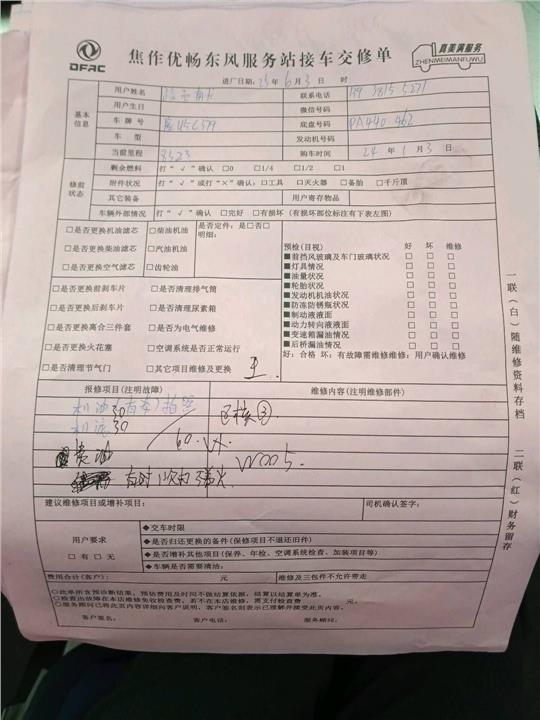 DFAC
焦作优畅东风服务站接车交修单
真美满服务
ZHENMEIMANFUWU
进厂日期: 25 年 6 月 3 日 时
基本信息
用户姓名
联系电话
用户生日
微信号码
车牌号
底盘号码 PA440 462
车型
发动机号码
当前里程 8323
购车时间 24 年 1 月 3 日
修前状态
剩余燃料 打“√”确认 □0 □1/4 □1/2 □1
附件状况 打“√”或打“×”确认: □工具 □灭火器 □备胎 □千斤顶
其它装备 用户寄存物品
车辆外部情况 打“√”确认 □完好 □有损坏 (有损坏部位标注有下表左图)
□是否更换机油滤芯 □柴油机油 是否定件: 是□否□
明细:
□是否更换柴油滤芯 □汽油机油
□是否更换空气滤芯 □齿轮油
预检(目视) 好 坏 维修
■前挡风玻璃及车门玻璃状况 □ □ □
■灯具情况 □ □ □
■油量状况 □ □ □
■轮胎状况 □ □ □
■发动机机油状况 □ □ □
■防冻防锈瓶状况 □ □ □
■制动液液面 □ □ □
■动力转向液液面 □ □ □
■变速箱漏油情况 □ □ □
■后桥漏油情况 □ □ □
好: 合格 坏: 有故障需维修维修: 用户确认维修
□是否更换前刹车片 □是否清理排气筒
□是否更换后刹车片 □是否清理尿素箱
□是否更换离合三件套 □是否为电气维修
□是否更换火花塞 □空调系统是否正常运行
□是否清理节气门 □其它项目维修及更换
王
报修项目(注明故障)
维修内容(注明维修部件)
机油 30
机滤 30
60.
W005
黄油
有时
建议维修项目或增补项目:
司机确认签字:
用户要求
□有 □无
◆交车时限
◆是否归还更换的备件(保修项目不退还旧件)
◆是否增补其他项目(保养、年检、空调系统检查、加装项目等)
◆车辆是否需要清洁:
费用合计(客户): 元
维修及三包件不允许带走
○此单所含预诊断结果, 预估费用及时间不做结算依据, 结算以结算单为准。
○检查出故障在本店维修免收检查费, 若不在本店维修, 需支付检查费 元。
○服务顾问已将此页内容详细向客户说明, 客户签名则表示已理解并接受此页内容。
客户签名: 客户电话: 服务顾问:
一联(白)随维修资料存档
二联(红)财务留存